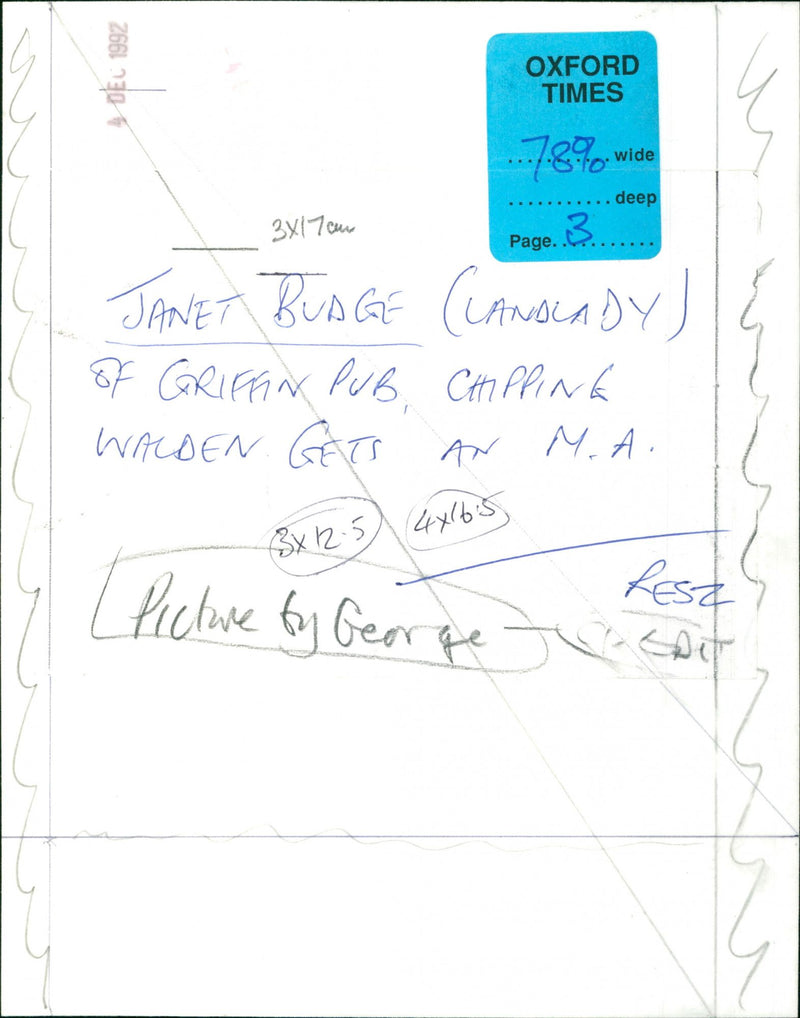 4 DEC 1992
OXFORD
TIMES
78% wide
deep
Page 3
3X17cm
JANET BUDGE (LANDLADY)
OF GRIFFIN PUB, CHIPPING
WALDEN GETS AN M.A.
3X12.5
4X16.5
Picture by George